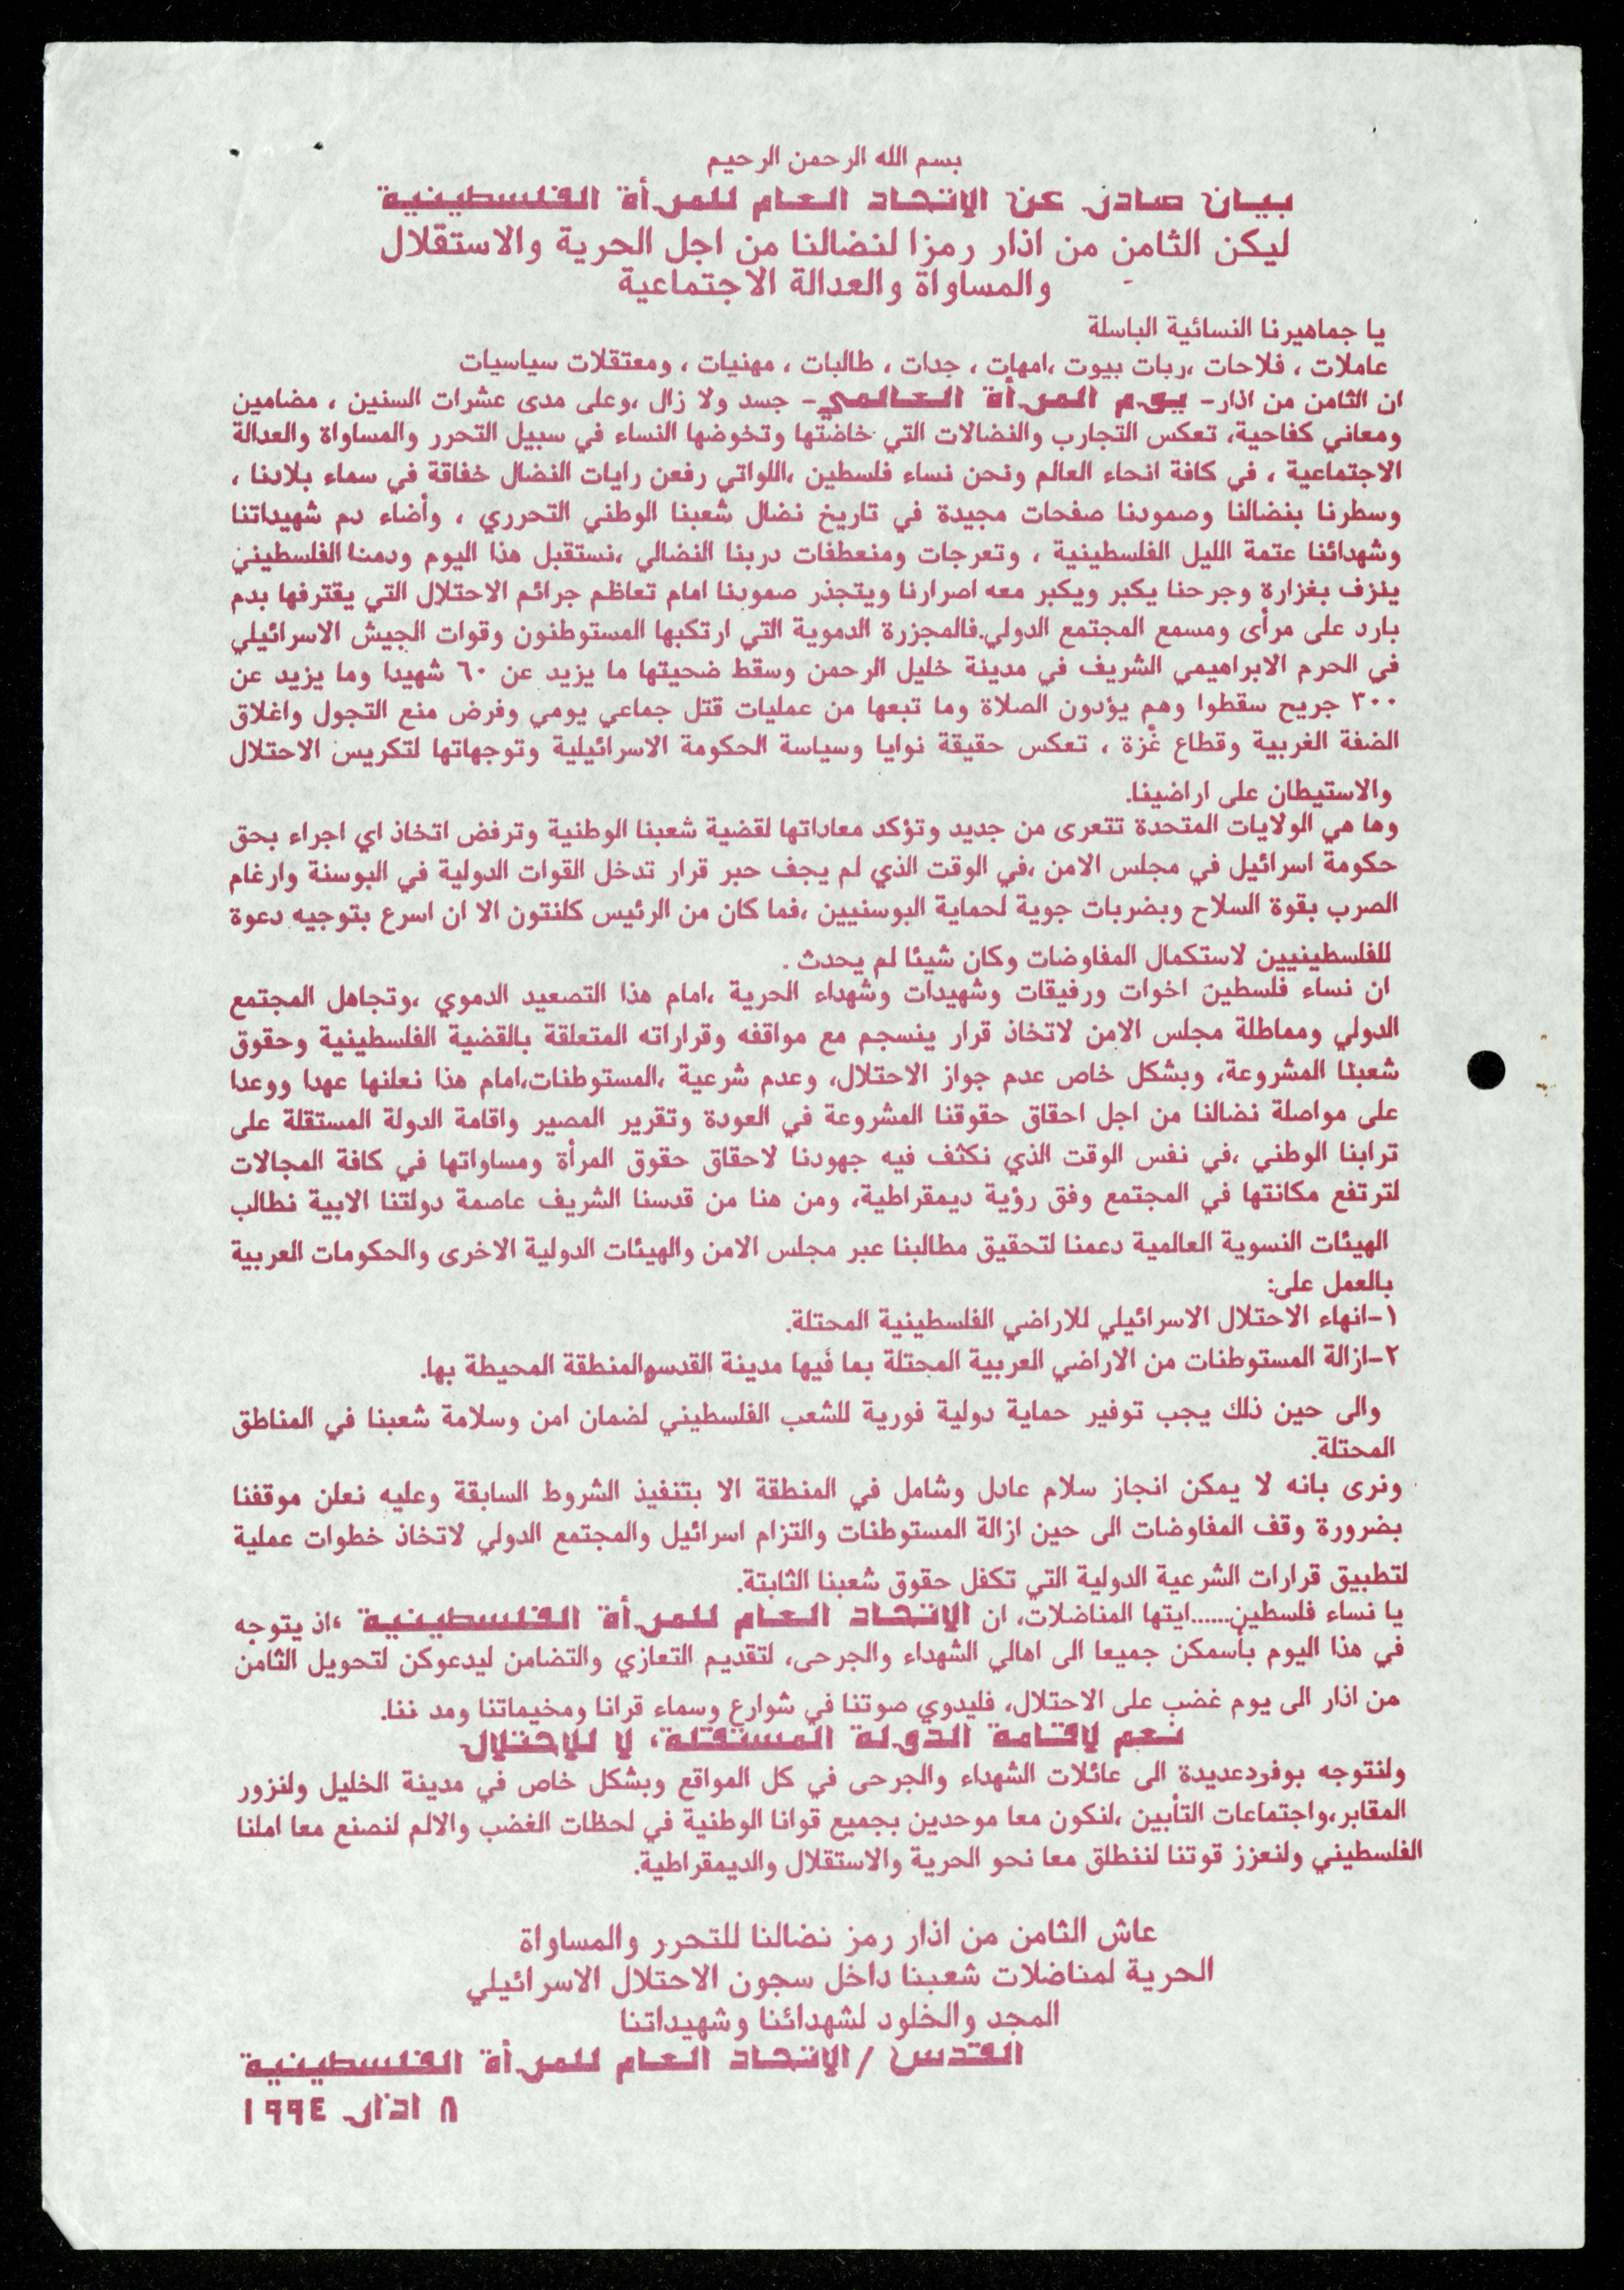 بسم الله الرحمن الرحيم
بيان صادر عن الاتحاد العام للمرأة الفلسطينية
ليكن الثامن من اذار رمزا لنضالنا من اجل الحرية والاستقلال
والمساواة والعدالة الاجتماعية
يا جماهيرنا النسائية الباسلة
عاملات ، فلاحات ،ربات بيوت ،امهات ، جدات ، طالبات ، مهنيات ، ومعتقلات سياسيات
ان الثامن من اذار- يوم المرأة العالمي- جسد ولا زال ،وعلى مدى عشرات السنين ، مضامين
ومعاني كفاحية، تعكس التجارب والنضالات التي خاضتها وتخوضها النساء في سبيل التحرر والمساواة والعدالة
الاجتماعية ، في كافة انحاء العالم ونحن نساء فلسطين ،اللواتي رفعن رايات النضال خفاقة في سماء بلادنا ،
وسطرنا بنضالنا وصمودنا صفحات مجيدة في تاريخ نضال شعبنا الوطني التحرري ، وأضاء دم شهيداتنا
وشهدائنا عتمة الليل الفلسطينية ، وتعرجات ومنعطفات دربنا النضالي ،نستقبل هذا اليوم ودمنا الفلسطيني
ينزف بغزارة وجرحنا يكبر ويكبر معه اصرارنا ويتجذر صمودنا امام تعاظم جرائم الاحتلال التي يقترفها بدم
بارد على مرأى ومسمع المجتمع الدولي.فالمجزرة الدموية التي ارتكبها المستوطنون وقوات الجيش الاسرائيلي
في الحرم الابراهيمي الشريف في مدينة خليل الرحمن وسقط ضحيتها ما يزيد عن ٦٠ شهيدا وما يزيد عن
٣٠٠ جريح سقطوا وهم يؤدون الصلاة وما تبعها من عمليات قتل جماعي يومي وفرض منع التجول واغلاق
الضفة الغربية وقطاع غزة ، تعكس حقيقة نوايا وسياسة الحكومة الاسرائيلية وتوجهاتها لتكريس الاحتلال
والاستيطان على اراضينا.
وها هي الولايات المتحدة تتعرى من جديد وتؤكد معاداتها لقضية شعبنا الوطنية وترفض اتخاذ اي اجراء بحق
حكومة اسرائيل في مجلس الامن ،في الوقت الذي لم يجف حبر قرار تدخل القوات الدولية في البوسنة وارغام
الصرب بقوة السلاح وبضربات جوية لحماية البوسنيين ،فما كان من الرئيس كلنتون الا ان اسرع بتوجيه دعوة
للفلسطينيين لاستكمال المفاوضات وكان شيئا لم يحدث .
ان نساء فلسطين اخوات ورفيقات وشهيدات وشهداء الحرية ،امام هذا التصعيد الدموي ،وتجاهل المجتمع
الدولي ومماطلة مجلس الامن لاتخاذ قرار ينسجم مع مواقفه وقراراته المتعلقة بالقضية الفلسطينية وحقوق
شعبنا المشروعة، وبشكل خاص عدم جواز الاحتلال، وعدم شرعية ،المستوطنات،امام هذا نعلنها عهدا ووعدا
على مواصلة نضالنا من اجل احقاق حقوقنا المشروعة في العودة وتقرير المصير واقامة الدولة المستقلة على
ترابنا الوطني ،في نفس الوقت الذي نكثف فيه جهودنا لاحقاق حقوق المرأة ومساواتها في كافة المجالات
لترتفع مكانتها في المجتمع وفق رؤية ديمقراطية، ومن هنا من قدسنا الشريف عاصمة دولتنا الابية نطالب
الهيئات النسوية العالمية دعمنا لتحقيق مطالبنا عبر مجلس الامن والهيئات الدولية الاخرى والحكومات العربية
بالعمل على:
١-انهاء الاحتلال الاسرائيلي للاراضي الفلسطينية المحتلة.
٢-ازالة المستوطنات من الاراضي العربية المحتلة بما فيها مدينة القدس والمنطقة المحيطة بها.
والى حين ذلك يجب توفير حماية دولية فورية للشعب الفلسطيني لضمان امن وسلامة شعبنا في المناطق
المحتلة.
ونرى بانه لا يمكن انجاز سلام عادل وشامل في المنطقة الا بتنفيذ الشروط السابقة وعليه نعلن موقفنا
بضرورة وقف المفاوضات الى حين ازالة المستوطنات والتزام اسرائيل والمجتمع الدولي لاتخاذ خطوات عملية
لتطبيق قرارات الشرعية الدولية التي تكفل حقوق شعبنا الثابتة.
يا نساء فلسطين......ايتها المناضلات، ان الاتحاد العام للمرأة الفلسطينية ،اذ يتوجه
في هذا اليوم بأسمكن جميعا الى اهالي الشهداء والجرحى، لتقديم التعازي والتضامن ليدعوكن لتحويل الثامن
من اذار الى يوم غضب على الاحتلال، فليدوي صوتنا في شوارع وسماء قرانا ومخيماتنا ومد ننا.
نعم لاقامة الدولة المستقلة، لا للاحتلال
ولنتوجه بوفردعديدة الى عائلات الشهداء والجرحى في كل المواقع وبشكل خاص في مدينة الخليل ولنزور
المقابر،واجتماعات التأبين ،لنكون معا موحدين بجميع قوانا الوطنية في لحظات الغضب والالم لنصنع معا املنا
الفلسطيني ولنعزز قوتنا لننطلق معا نحو الحرية والاستقلال والديمقراطية.
عاش الثامن من اذار رمز نضالنا للتحرر والمساواة
الحرية لمناضلات شعبنا داخل سجون الاحتلال الاسرائيلي
المجد والخلود لشهدائنا وشهيداتنا
القدس /الاتحاد العام للمرأة الفلسطينية
٨ اذار ١٩٩٤